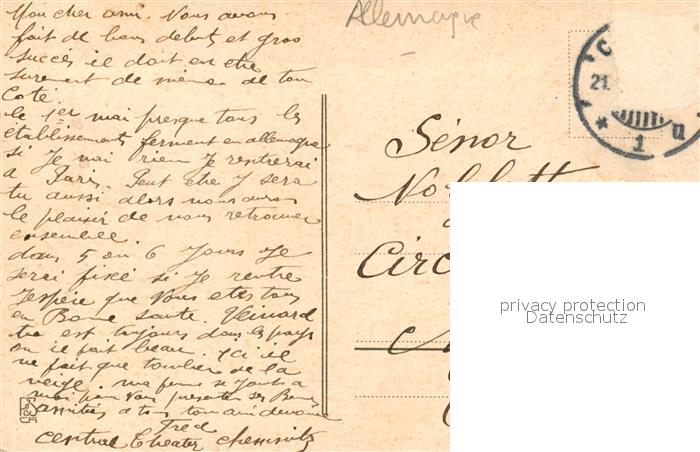 Mon cher ami. Nous avons
fait de bons debuts et gros
succès il doit en etre
surement de meme de ton
Coté.
le 1er mai presque tous les
établissements ferment en allemagne
si je n'ai rien je rentrerai
a Paris. Peut etre y sera
tu aussi alors nous aurons
le plaisir de nous retrouver
ensemble.
dans 5 ou 6 jours je
serai fixé si je rentre
J'espère que vous etes tous
en Bonne Santé. Veinard
tu est toujours dans les pays
ou il fait beau. Ici il
ne fait que tomber de la
neige. ma femme se joint a
moi pour vous presenter ses Bonnes
amitiés a tous ton ami devoué
Fred
Central Theater Chemnitz
Allemagne
C
21.
* 1 u
Sénor
Circ
privacy protection
Datenschutz